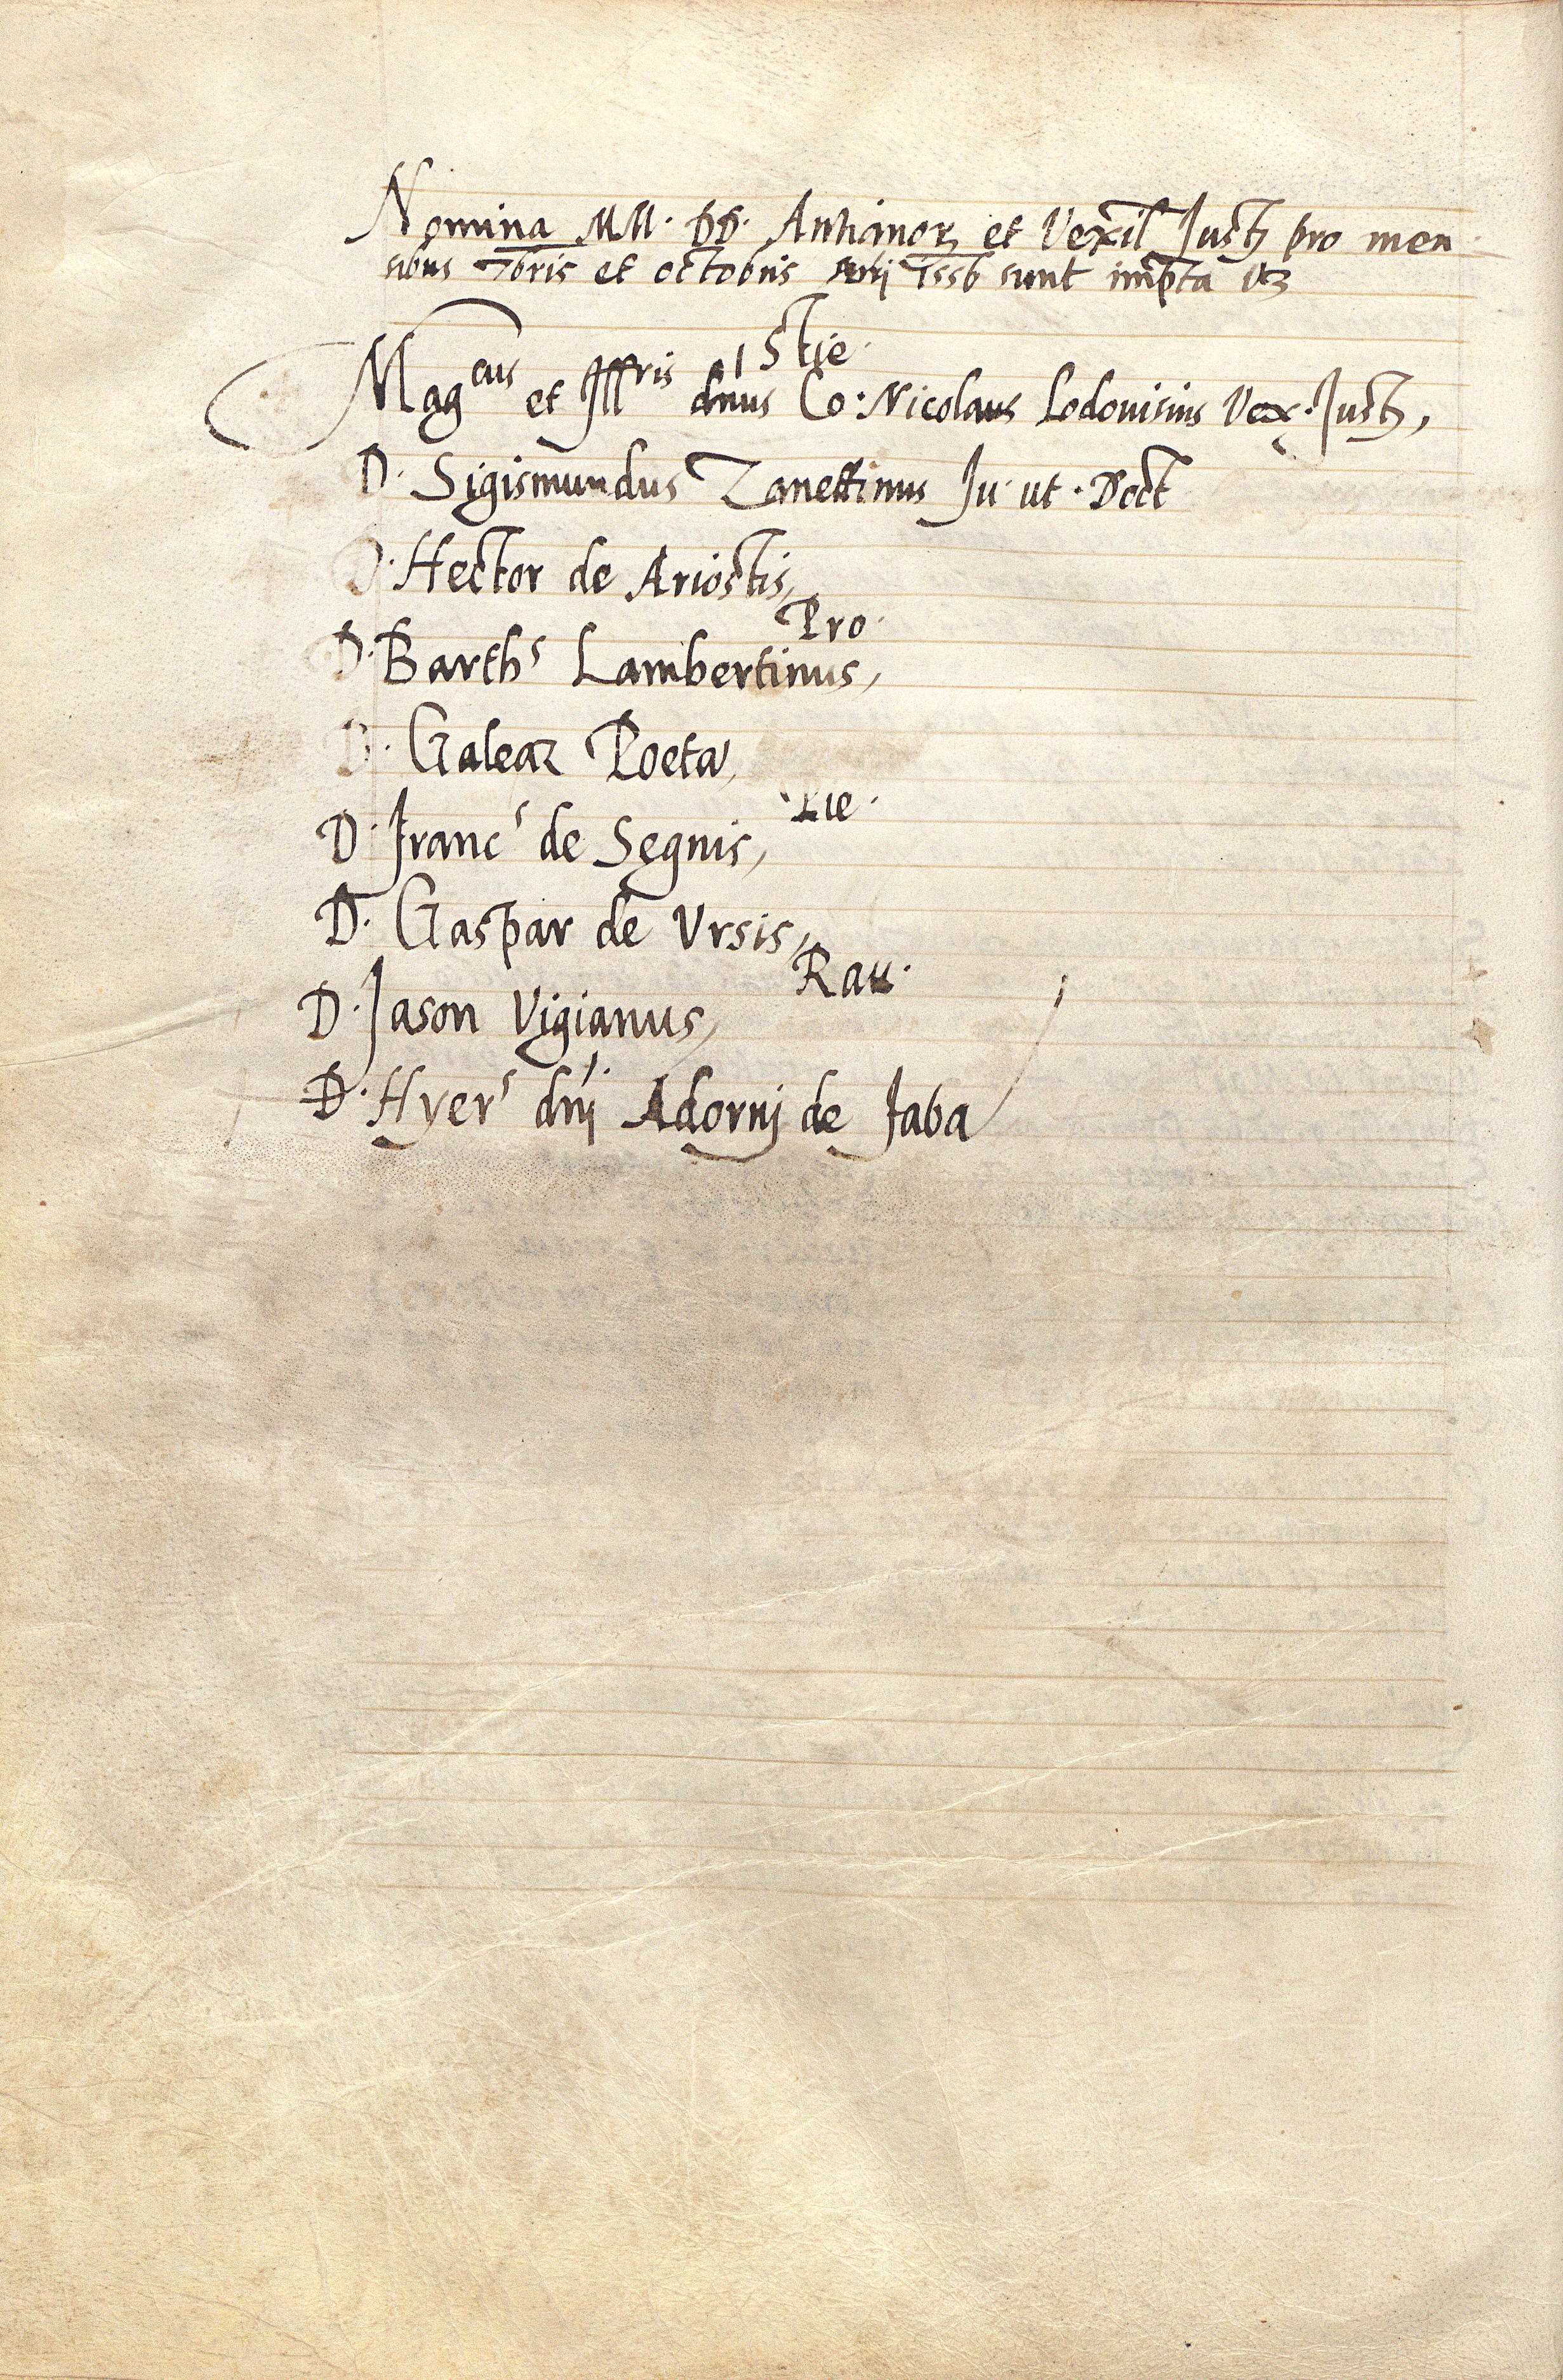 Nomina MM. DD. Anthianorꝝ et Vexil Justꝫ pro men
sibus 7bris et octobris Anj 1556 sunt imp̄ta vꝫ
Stie.
Magcus et Illris dnus Co: Nicolaus Lodouisius Vex. Justꝫ,
D. Sigismundus Zanettinus Ju. ut. Doct
D. Hector de Ariostis,
Pro.
D. Barths Lambertinus,
D. Galeaz Poeta,
Pie.
D. Francs de Segnis,
D. Gaspar de Ursis,
Rau.
D. Jason Vigianus,
D. Hyers dnj Adornj de faba